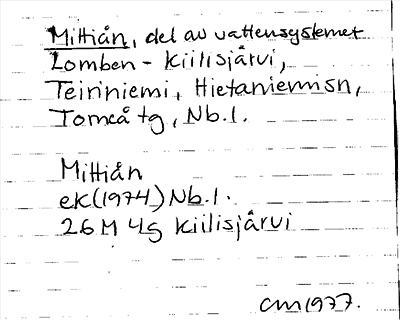 Mittiån, del av vattensystemet
Lomben - Kiilisjärvi,
Teiriniemi, Hietaniemisn,
Torneå tg, Nb.l.
Mittiån
ek(1974) Nb.l.
26M 4g Kiilisjärvi
CM 1977.